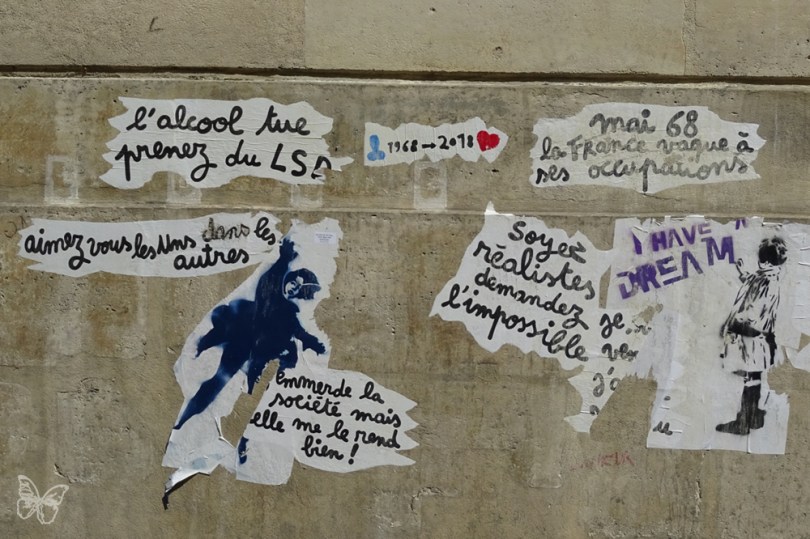 l'alcool tue
prenez du LSD
1968 → 2018
mai 68
la France vague à
ses occupations
aimez vous les uns dans les
autres
emmerde la
société mais
elle me le rend
bien !
Soyez
réalistes
demandez
l'impossible
je
j'a
I HAVE A
DREAM